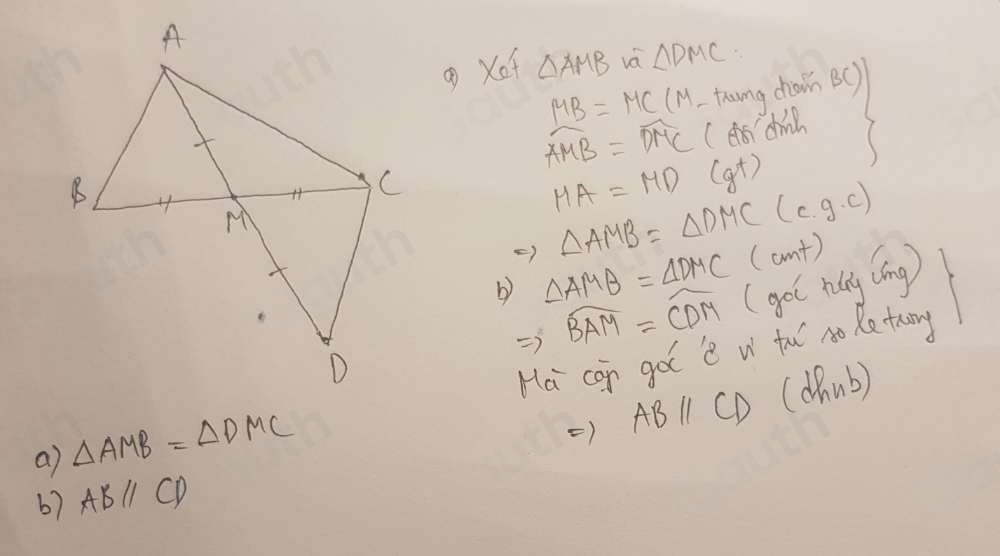 A
B
C
M
D
a) △AMB = △DMC
b) AB // CD
a) Xét △AMB và △DMC:
MB = MC (M - trung điểm BC)
$\widehat{AMB}$ = $\widehat{DMC}$ (đối đỉnh
MA = MD (gt)
=> △AMB = △DMC (c.g.c)
b) △AMB = △DMC (cmt)
=> $\widehat{BAM}$ = $\widehat{CDM}$ (góc tương ứng)
Mà cặp góc ở vị trí so le trong
=> AB // CD (dhnb)